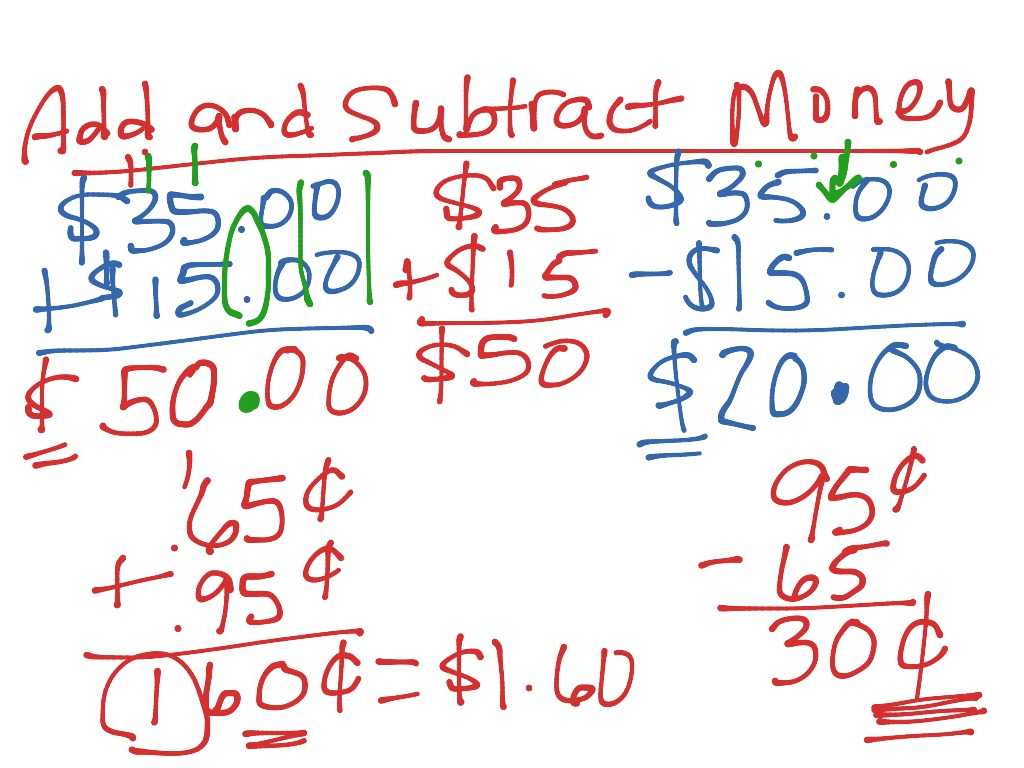 Add and Subtract Money
$35.00
+ $15.00
$50.00
$35
+ $15
$50
$35.00
- $15.00
$20.00
1
.65¢
+ .95¢
160¢ = $1.60
95¢
- 65
30¢